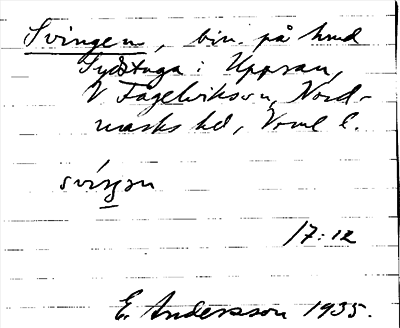 Svingen, bin. på hmd
Sydstuga i Uppsau,
V Fågelviksvn, Nord-
marks hd, Vrml l.
svíŋən
17:12
E. Andersson 1935.